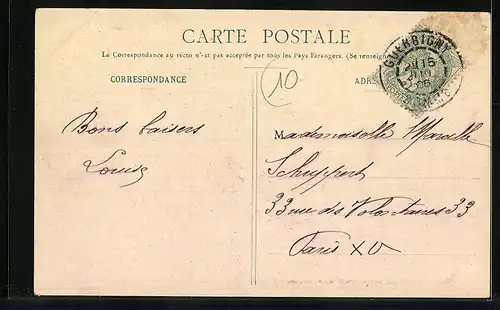 CARTE POSTALE
La Correspondance au recto n'est pas acceptée par tous les Pays Etrangers. (Se renseign
CORRESPONDANCE
ADR
GUERBIGNY
15
10
Bons baisers
Louise
Mademoiselle Marcelle
Schuppert
33 rue des Volontaires 33
Paris XV